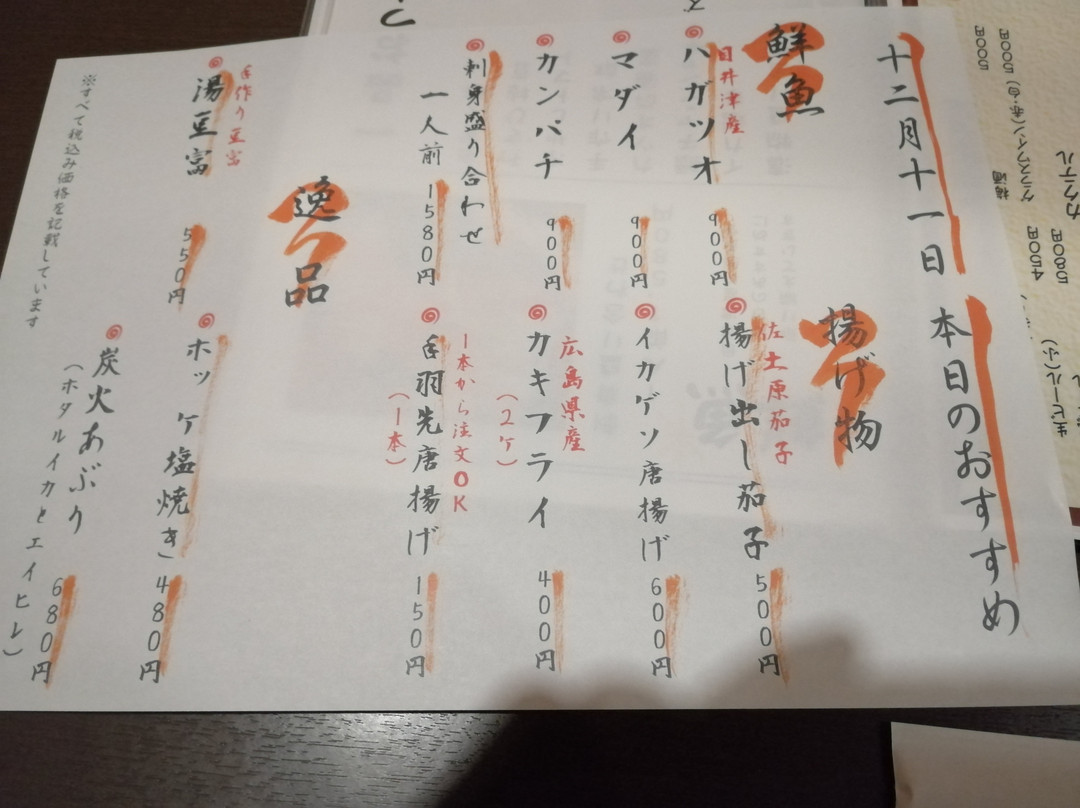 十二月十一日 本日のおすすめ
鮮魚
目井津産
ハガツオ 900円
マダイ 900円
カンパチ 900円
刺身盛り合わせ
一人前 1580円
揚げ物
佐土原茄子
揚げ出し茄子 500円
イカゲソ唐揚げ 600円
広島県産
カキフライ 400円
(2ケ)
1本から注文OK
手羽先唐揚げ 150円
(1本)
逸品
手作り豆富
湯豆富 550円
ホッケ塩焼き 480円
炭火あぶり 680円
(ホタルイカとエイヒレ)
※すべて税込み価格を記載しています
500円
グラスワイン(赤・白) 500円
カクテル
450円
580円
生ビール(小)